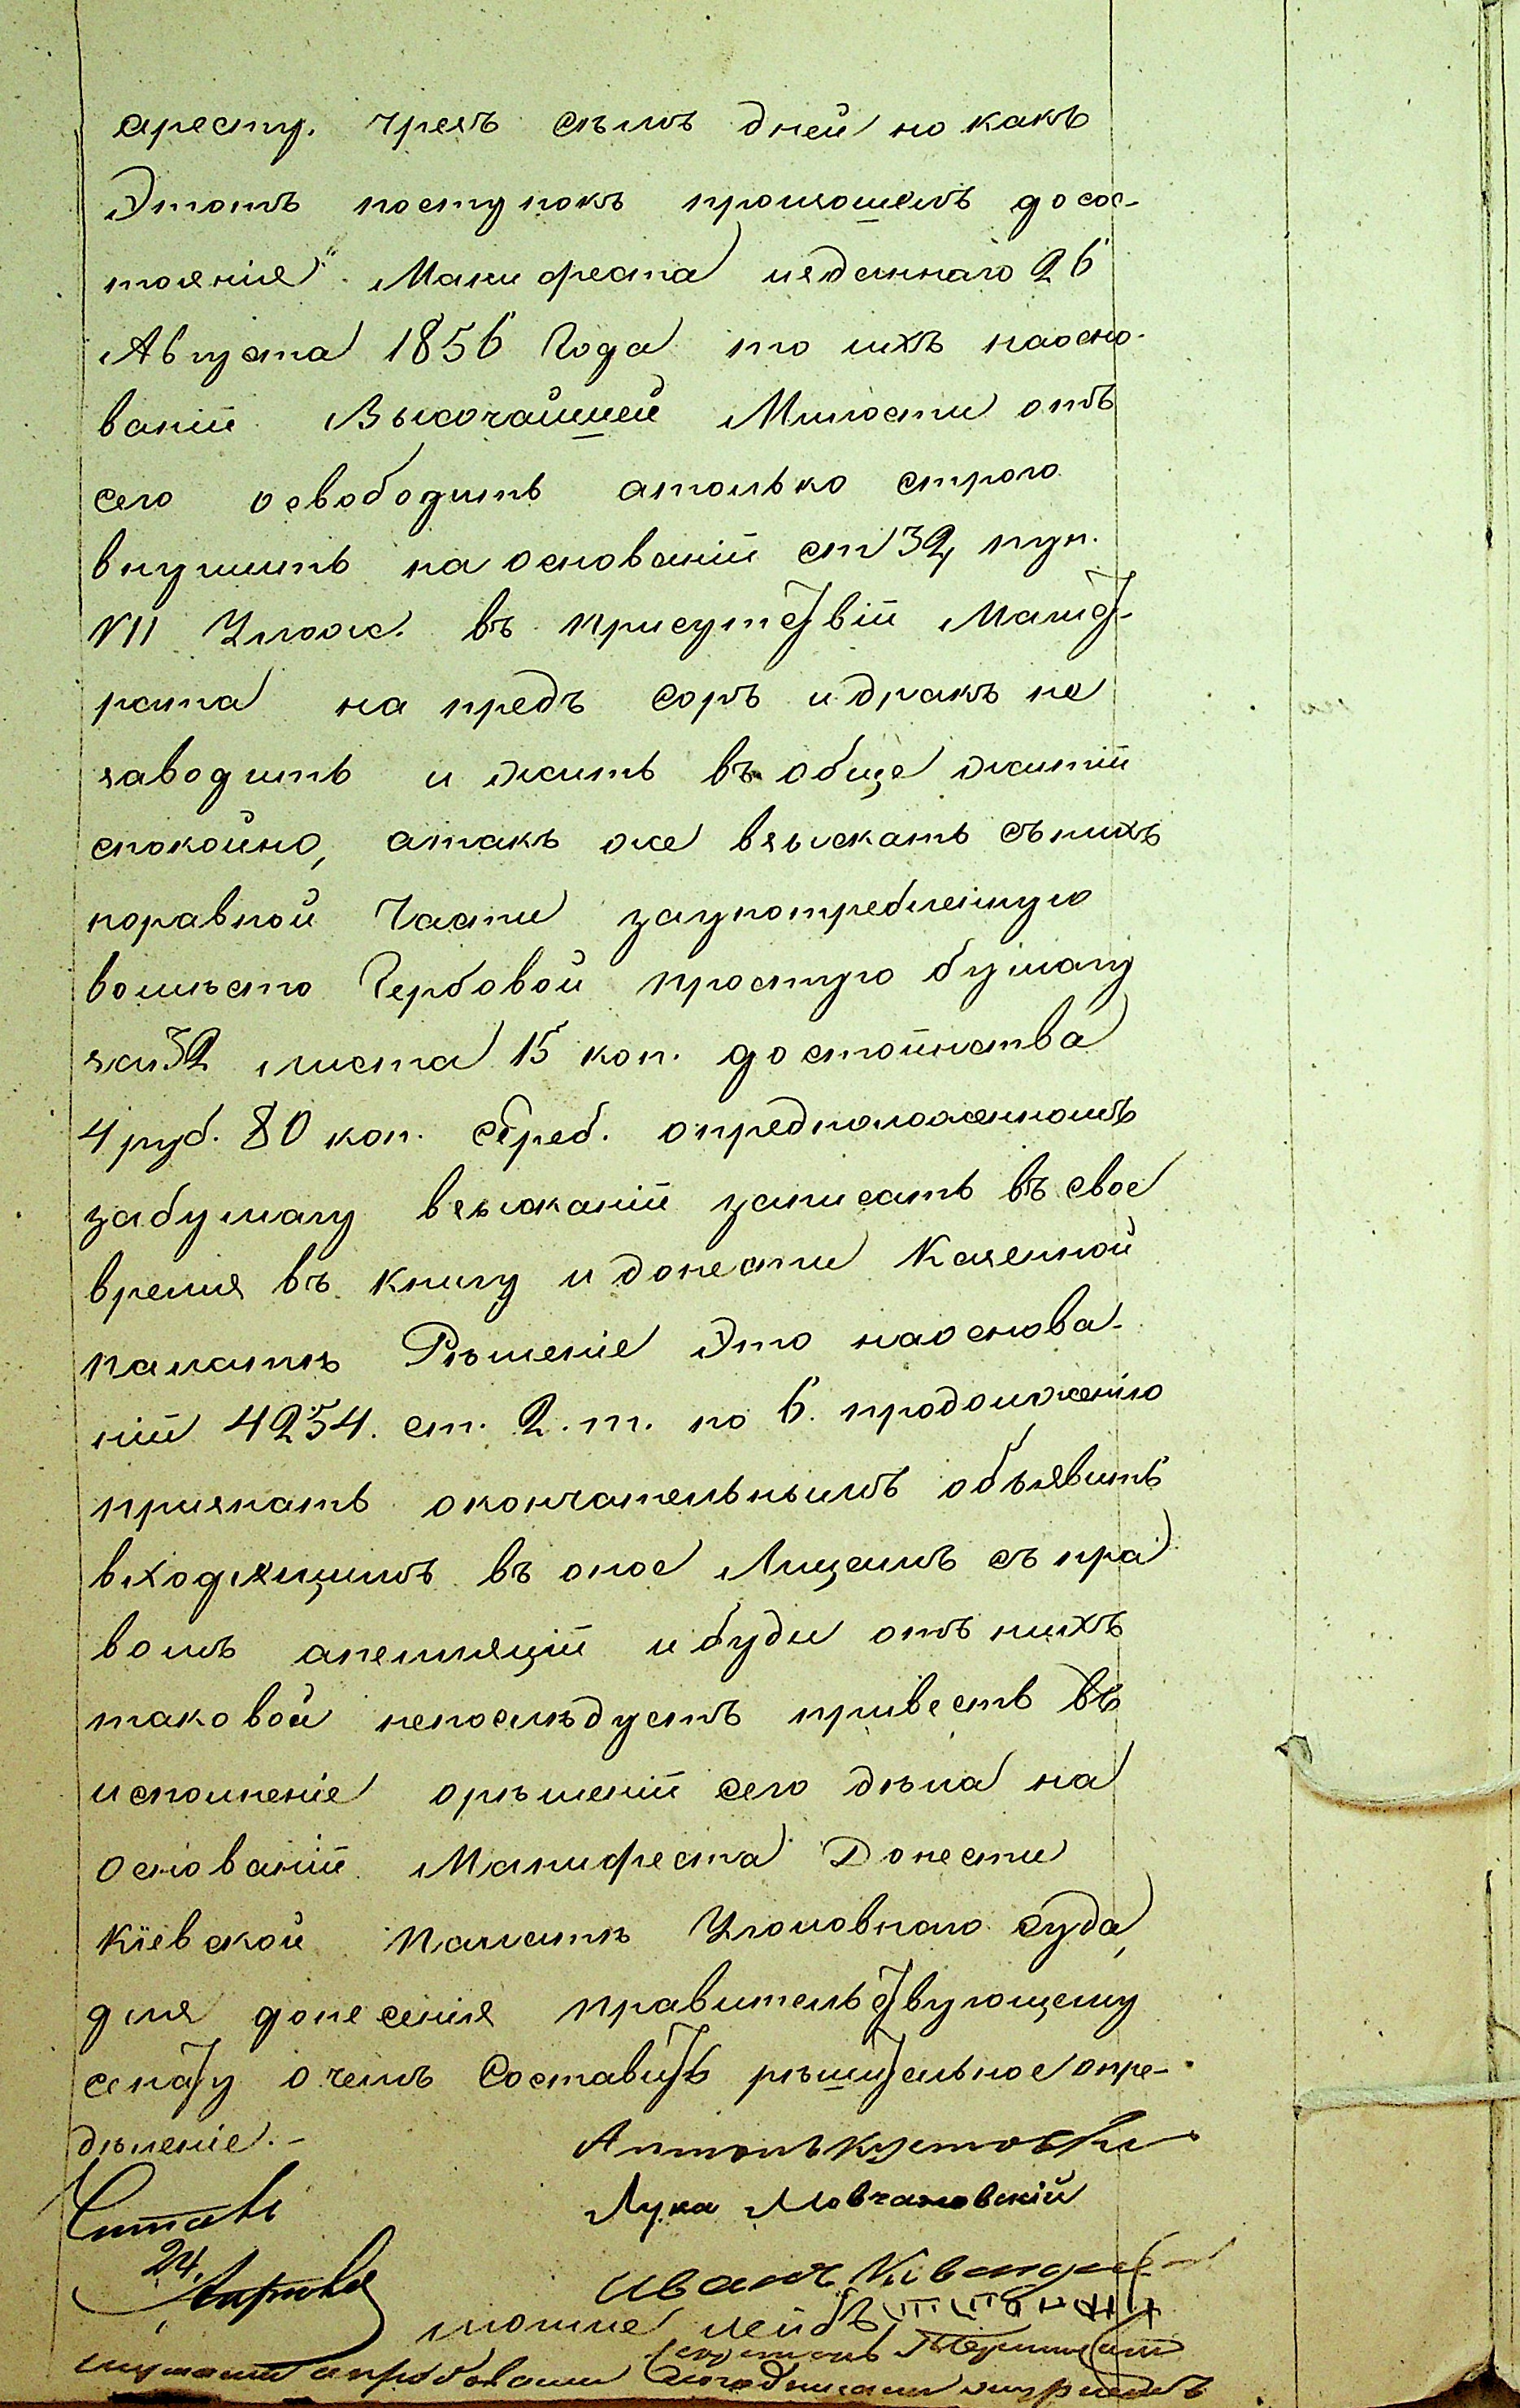 аресту. чрезъ семъ дней но какъ
Этотъ поступокъ произошелъ досос-
тоянія Манифеста изданнаго 26
Августа 1856 Года то ихъ наосно-
ваніи Высочайшей Милости отъ
сего освободить атолько строго
внушить на основаніи ст 32, пун.
VII Улож. въ присутствіи Магист-
рата на предъ соръ идракъ не
заводить и жить въ обще житіи
спокойно, атакъ же взыскать съ нихъ
поравной Части заупотребленную
вомѣсто Гербовой простую бумагу
за 32 листа 15 коп. достоинства
4 руб. 80 коп. сереб. опредположенномъ
забумагу взысканіи записать въ свое
время въ книгу и донести Казенной
палатѣ Рѣшеніе Это наоснова-
ніи 4254. ст. 2. т. по 6. продолженію
признать окончательнымъ объявить
входящимъ въ оное Лицамъ съ пра
вомъ апелляціи и буди отъ нихъ
таковой непослѣдуетъ привесть въ
исполненіе орѣшеніи сего дѣла на
основаніи Манифеста Донести
Кіевской Палатѣ Уголовного Суда,
для донесенія Правительствующему
сенату очемъ Составить рѣшительное опре-
дѣленіе.-
Антонъ
Лука Мовчановскій
Читалъ
24,
Иванъ
лейбъ